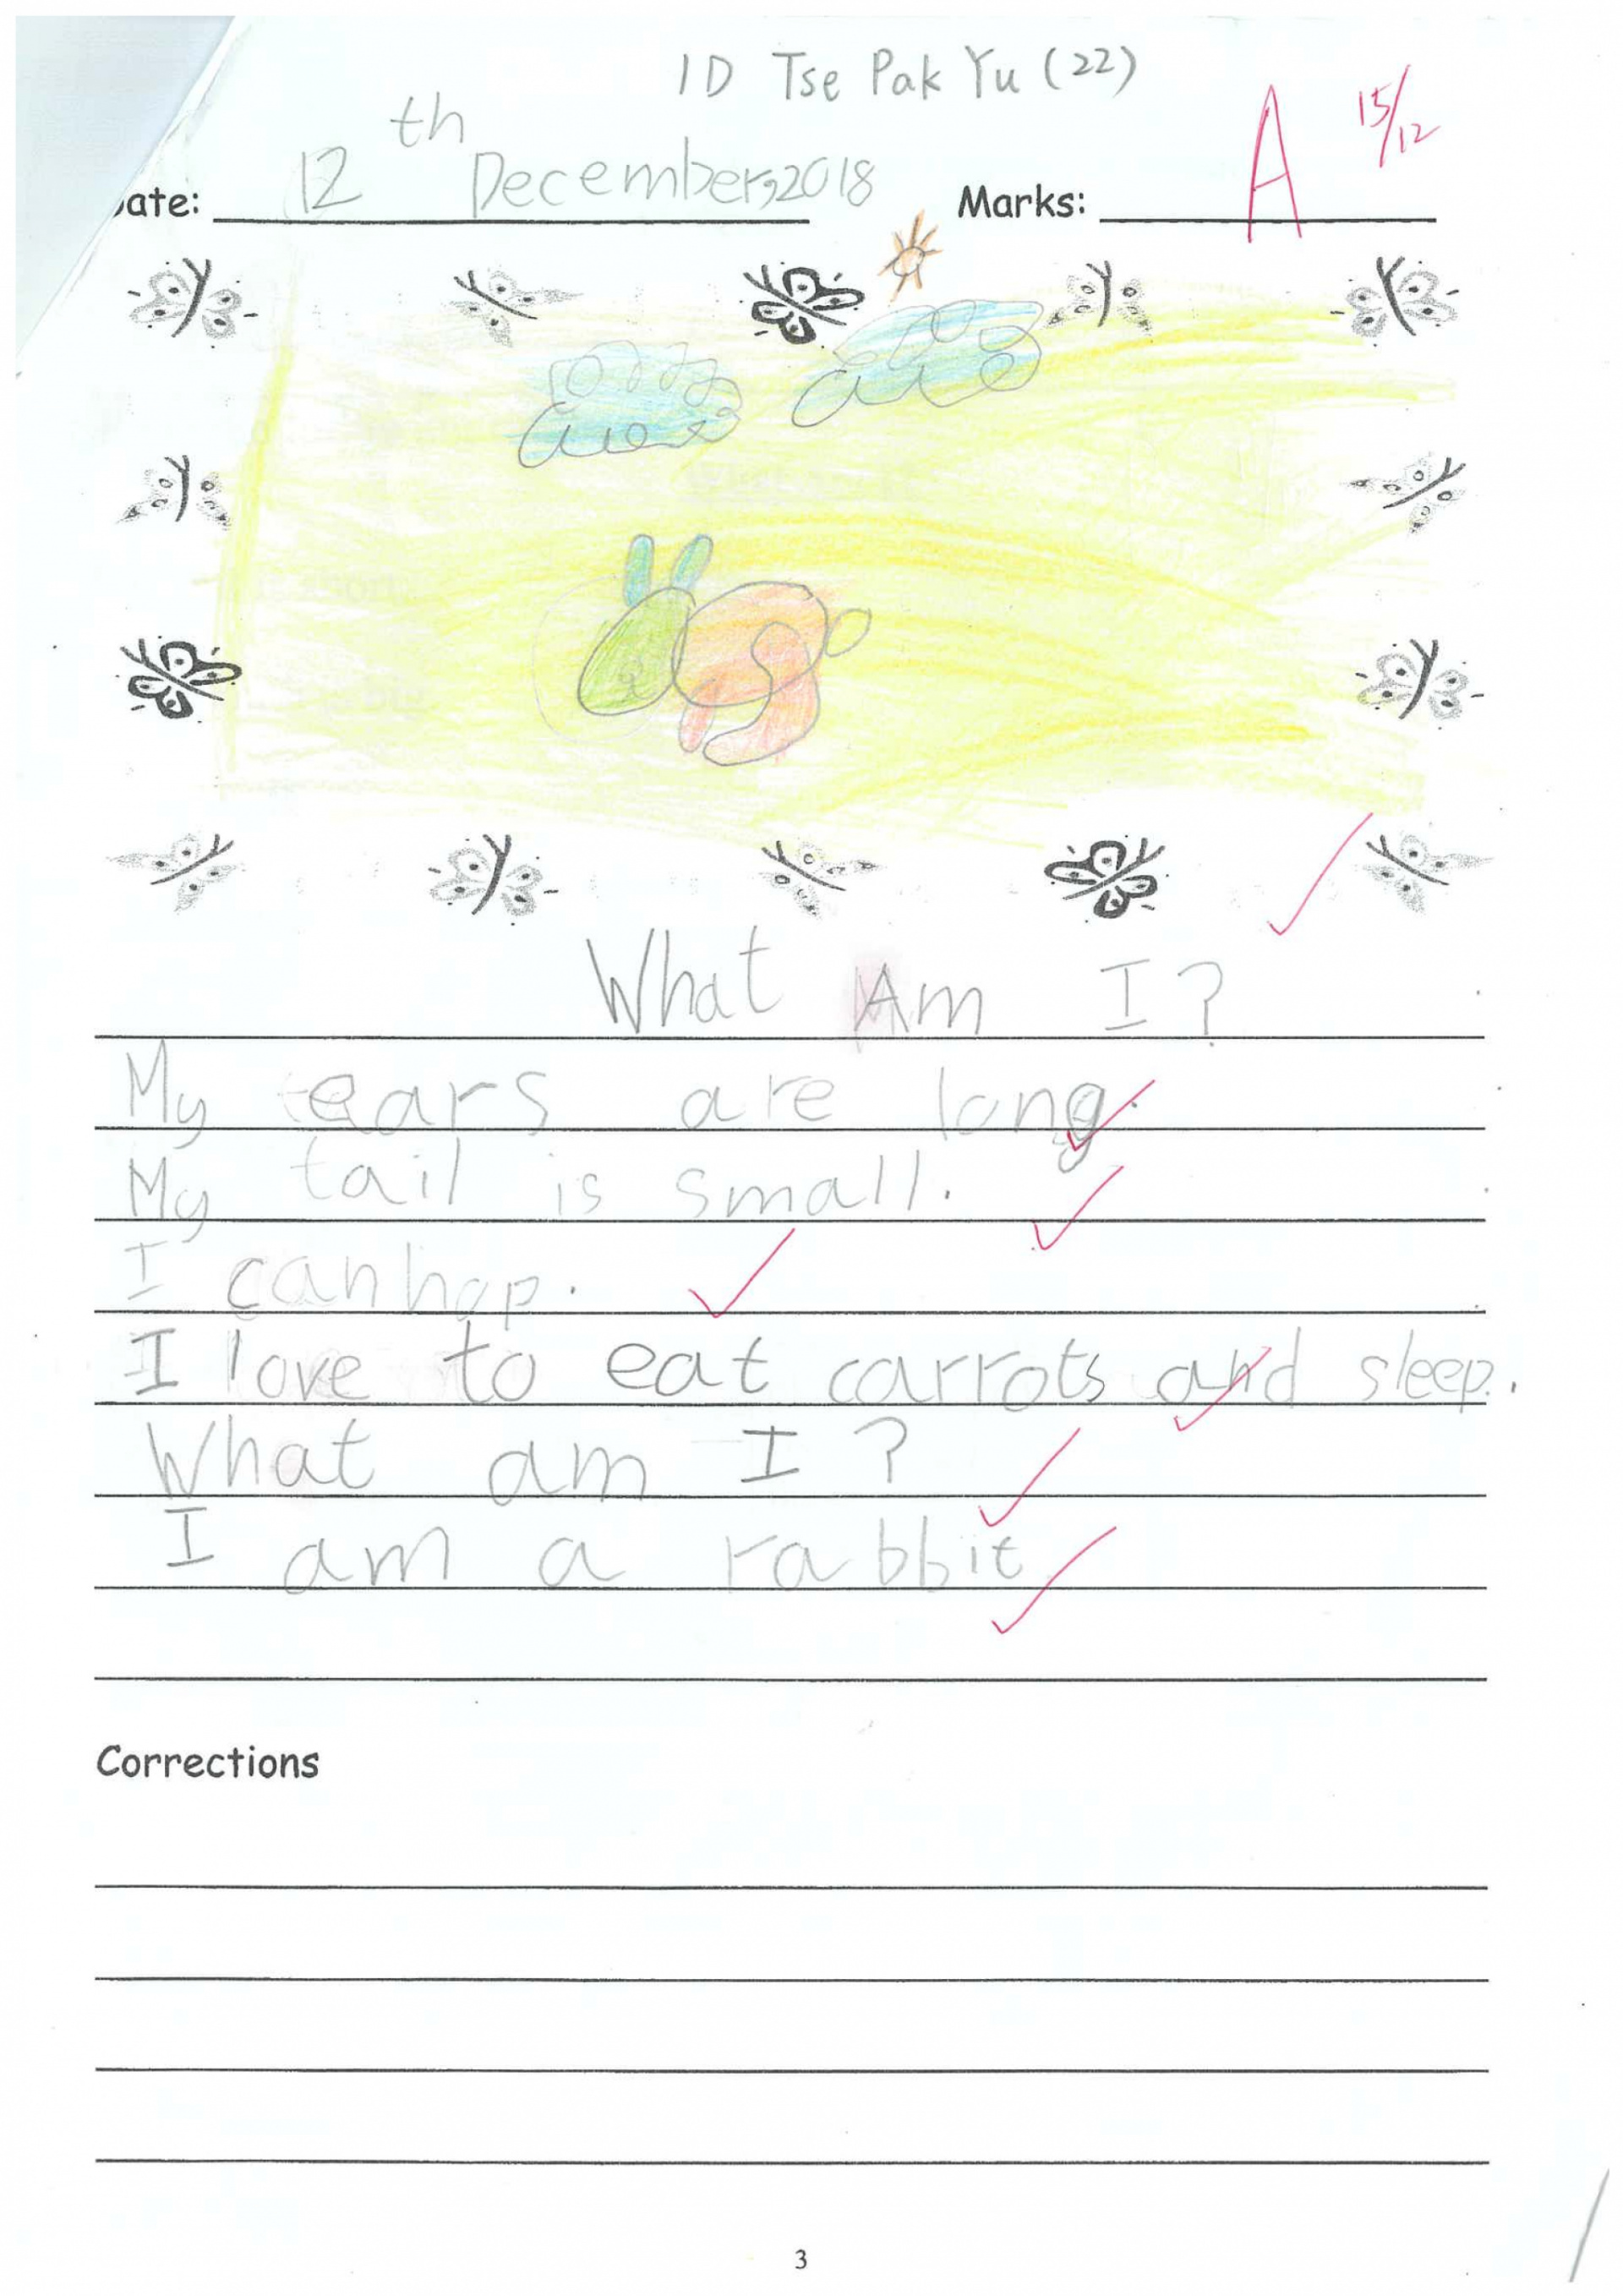 1D Tse Pak Yu (22)
A 15/12
ate: 12th December,2018 Marks:
What Am I?
My ears are long.
My tail is small.
I can hop.
I love to eat carrots and sleep.
What am I?
I am a rabbit
Corrections
3